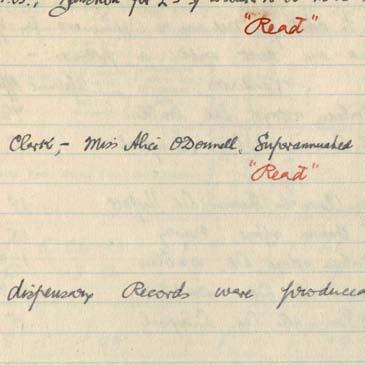 for £5
"Read"
Clark,- Miss Alice O'Donnell, Superannuated
"Read"
dispensary Records were produced